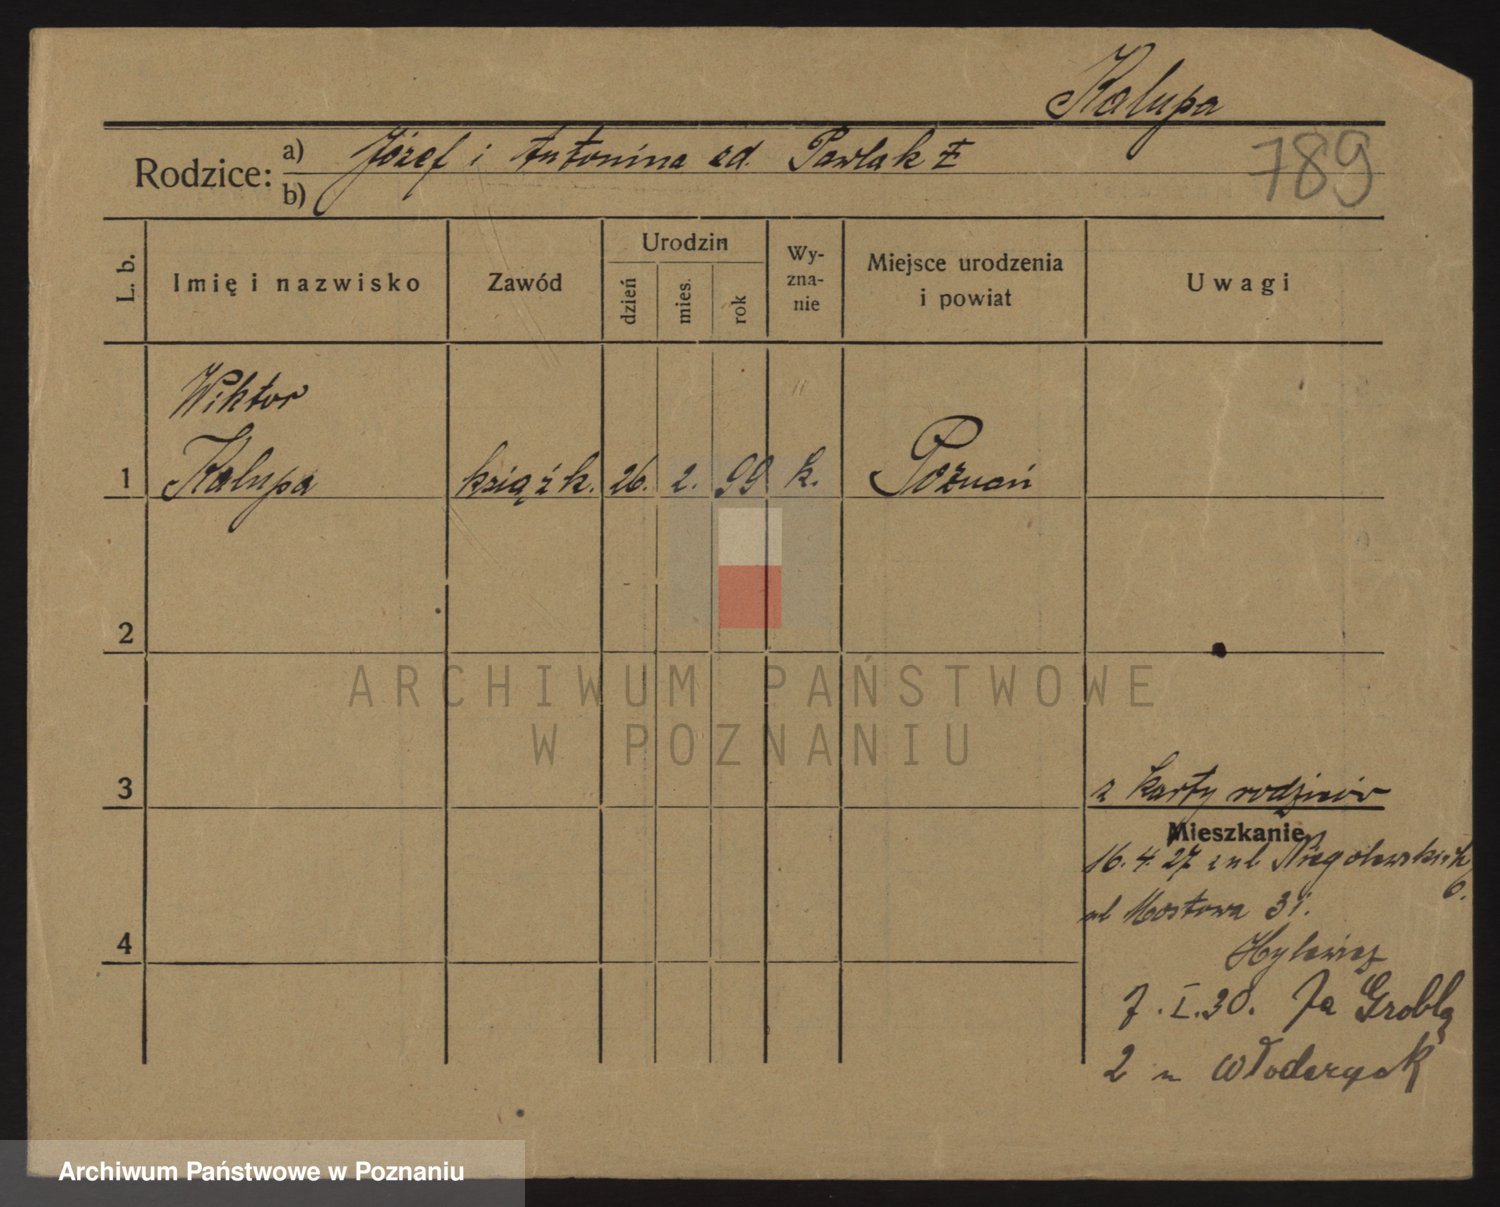 Kalupa
789
Rodzice: a) Józef i Antonina zd. Pawlak
b)
L. b.
Imię i nazwisko
Zawód
Urodzin
dzień
mies.
rok
Wy-
zna-
nie
Miejsce urodzenia
i powiat
Uwagi
Wiktor
1 Kalupa książk. 26. 2. 99 k. Poznań
2
3
4
z karty rodziców
Mieszkanie
16. 4. 27 z ul. Niegolewskich
6.
ul Mostowa 31.
7. I. 30. Za Groblą
2 u Włodarczak
ARCHIWUM PAŃSTWOWE
W POZNANIU
Archiwum Państwowe w Poznaniu